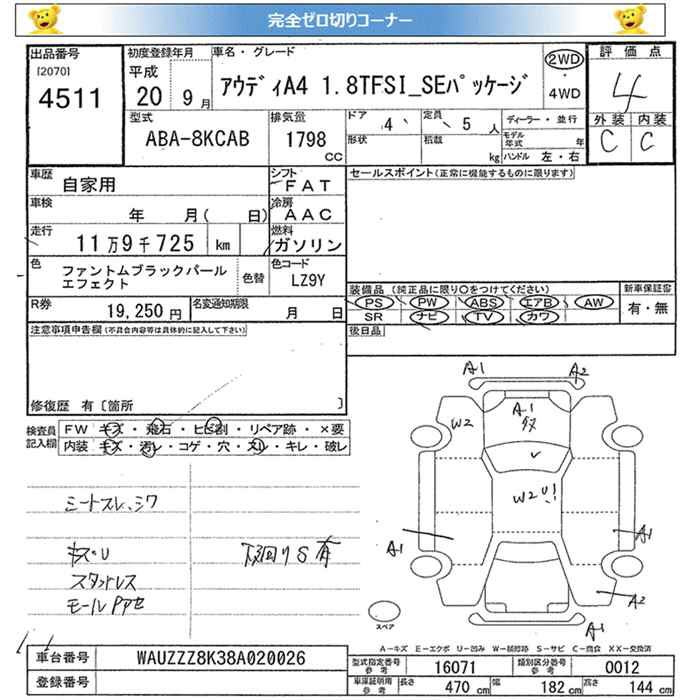 完全ゼロ切りコーナー
出品番号 初度登録年月 車名・グレード 評価点
[2070] 平成 アウディA4 1.8TFSI_SEパッケージ 2WD・4WD 4
4511 20 9月
型式 排気量 ドア 4 定員 5 人 ディーラー・並行 外装 内装
ABA-8KCAB 1798 CC 形状 積載 kg モデル年式 年 C C
ハンドル 左・右
車歴 自家用 シフト FAT セールスポイント(正常に機能するものに限ります)
車検 年 月( 日) 冷房 AAC
走行 11万9千725 km 燃料 ガソリン
色 ファントムブラックパールエフェクト 色替 色コード LZ9Y
装備品 (純正品に限り○をつけてください) 新車保証書
PS PW ABS エアB AW 有・無
R券 19,250円 名変通知期限 月 日 SR ナビ TV カワ
注意事項申告欄(不具合内容等は具体的に記入して下さい) 後日品
修復歴 有〔箇所 〕
検査員記入欄 FW キズ・飛石・ヒビ割・リペア跡・×要
内装 キズ・汚レ・コゲ・穴・スレ・キレ・破レ
シートスレ、シワ
キズU 下回りS有
スタッドレス
A1 A2
W2 A1
W2
A1 A1
A2
A1
スペア
A-キズ E-エクボ U-凹み W-補修跡 S-サビ C-腐食 XX-交換済
車台番号 WAUZZZ8K38A020026 型式指定番号 参考 16071 類別区分番号 参考 0012
登録番号 車庫証明用 参考 長さ 470 cm 幅 182 cm 高さ 144 cm